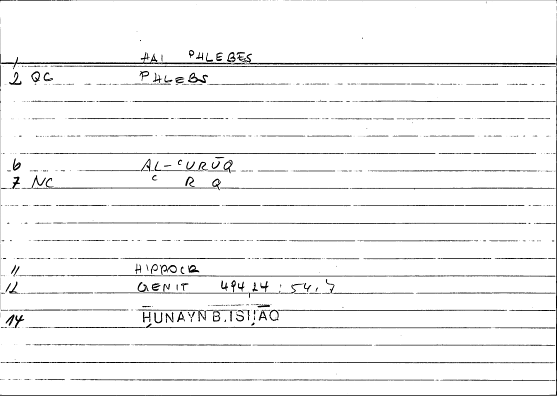 1 HAI PHLEBES
2 QC PHLEBS
6 AL-ʿURŪQ
7 NC ʿ R Q
11 HIPPOCR
12 GENIT 494,24 ; 54,7
14 ḤUNAYN B. ISḤĀQ